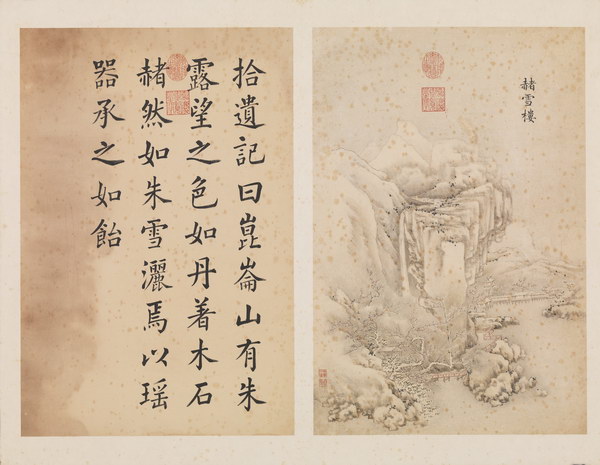 拾遺記曰崑崙山有朱
露望之色如丹著木石
赭然如朱雪灑焉以瑶
器承之如飴
赭雪樓